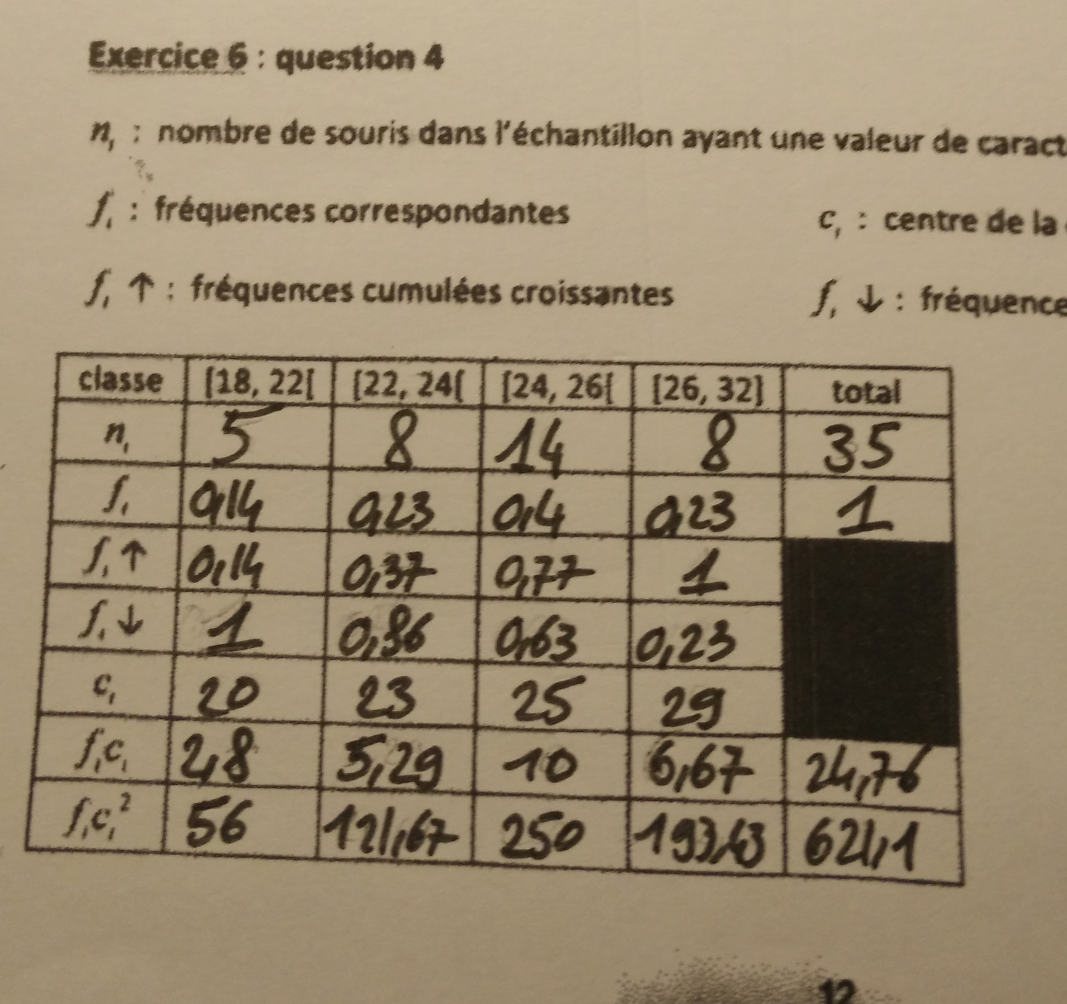 Exercice 6 : question 4
n_i : nombre de souris dans l'échantillon ayant une valeur de caract
f_i : fréquences correspondantes c_i : centre de la
f_i ↑ : fréquences cumulées croissantes f_i ↓ : fréquence
classe [18, 22[ [22, 24[ [24, 26[ [26, 32] total
n_i 5 8 14 8 35
f_i 0,14 0,23 0,4 0,23 1
f_i ↑ 0,14 0,37 0,77 1
f_i ↓ 1 0,86 0,63 0,23
c_i 20 23 25 29
f_i c_i 2,8 5,29 10 6,67 24,76
f_i c_i² 56 121,67 250 193,43 621,1
12